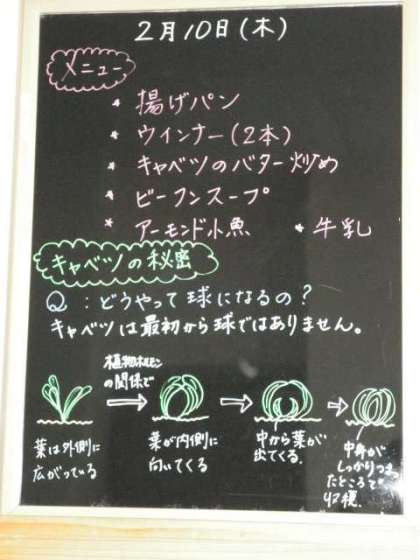 2月10日(木)
メニュー
* 揚げパン
* ウインナー(2本)
* キャベツのバター炒め
* ビーフンスープ
* アーモンド小魚 * 牛乳
キャベツの秘密
Q:どうやって球になるの?
キャベツは最初から球ではありません。
植物ホルモン
の関係で
葉は外側に
広がっている
葉が内側に
向いてくる
中から葉が
出てくる.
中身が
しっかりつまっ
たところで
収穫.